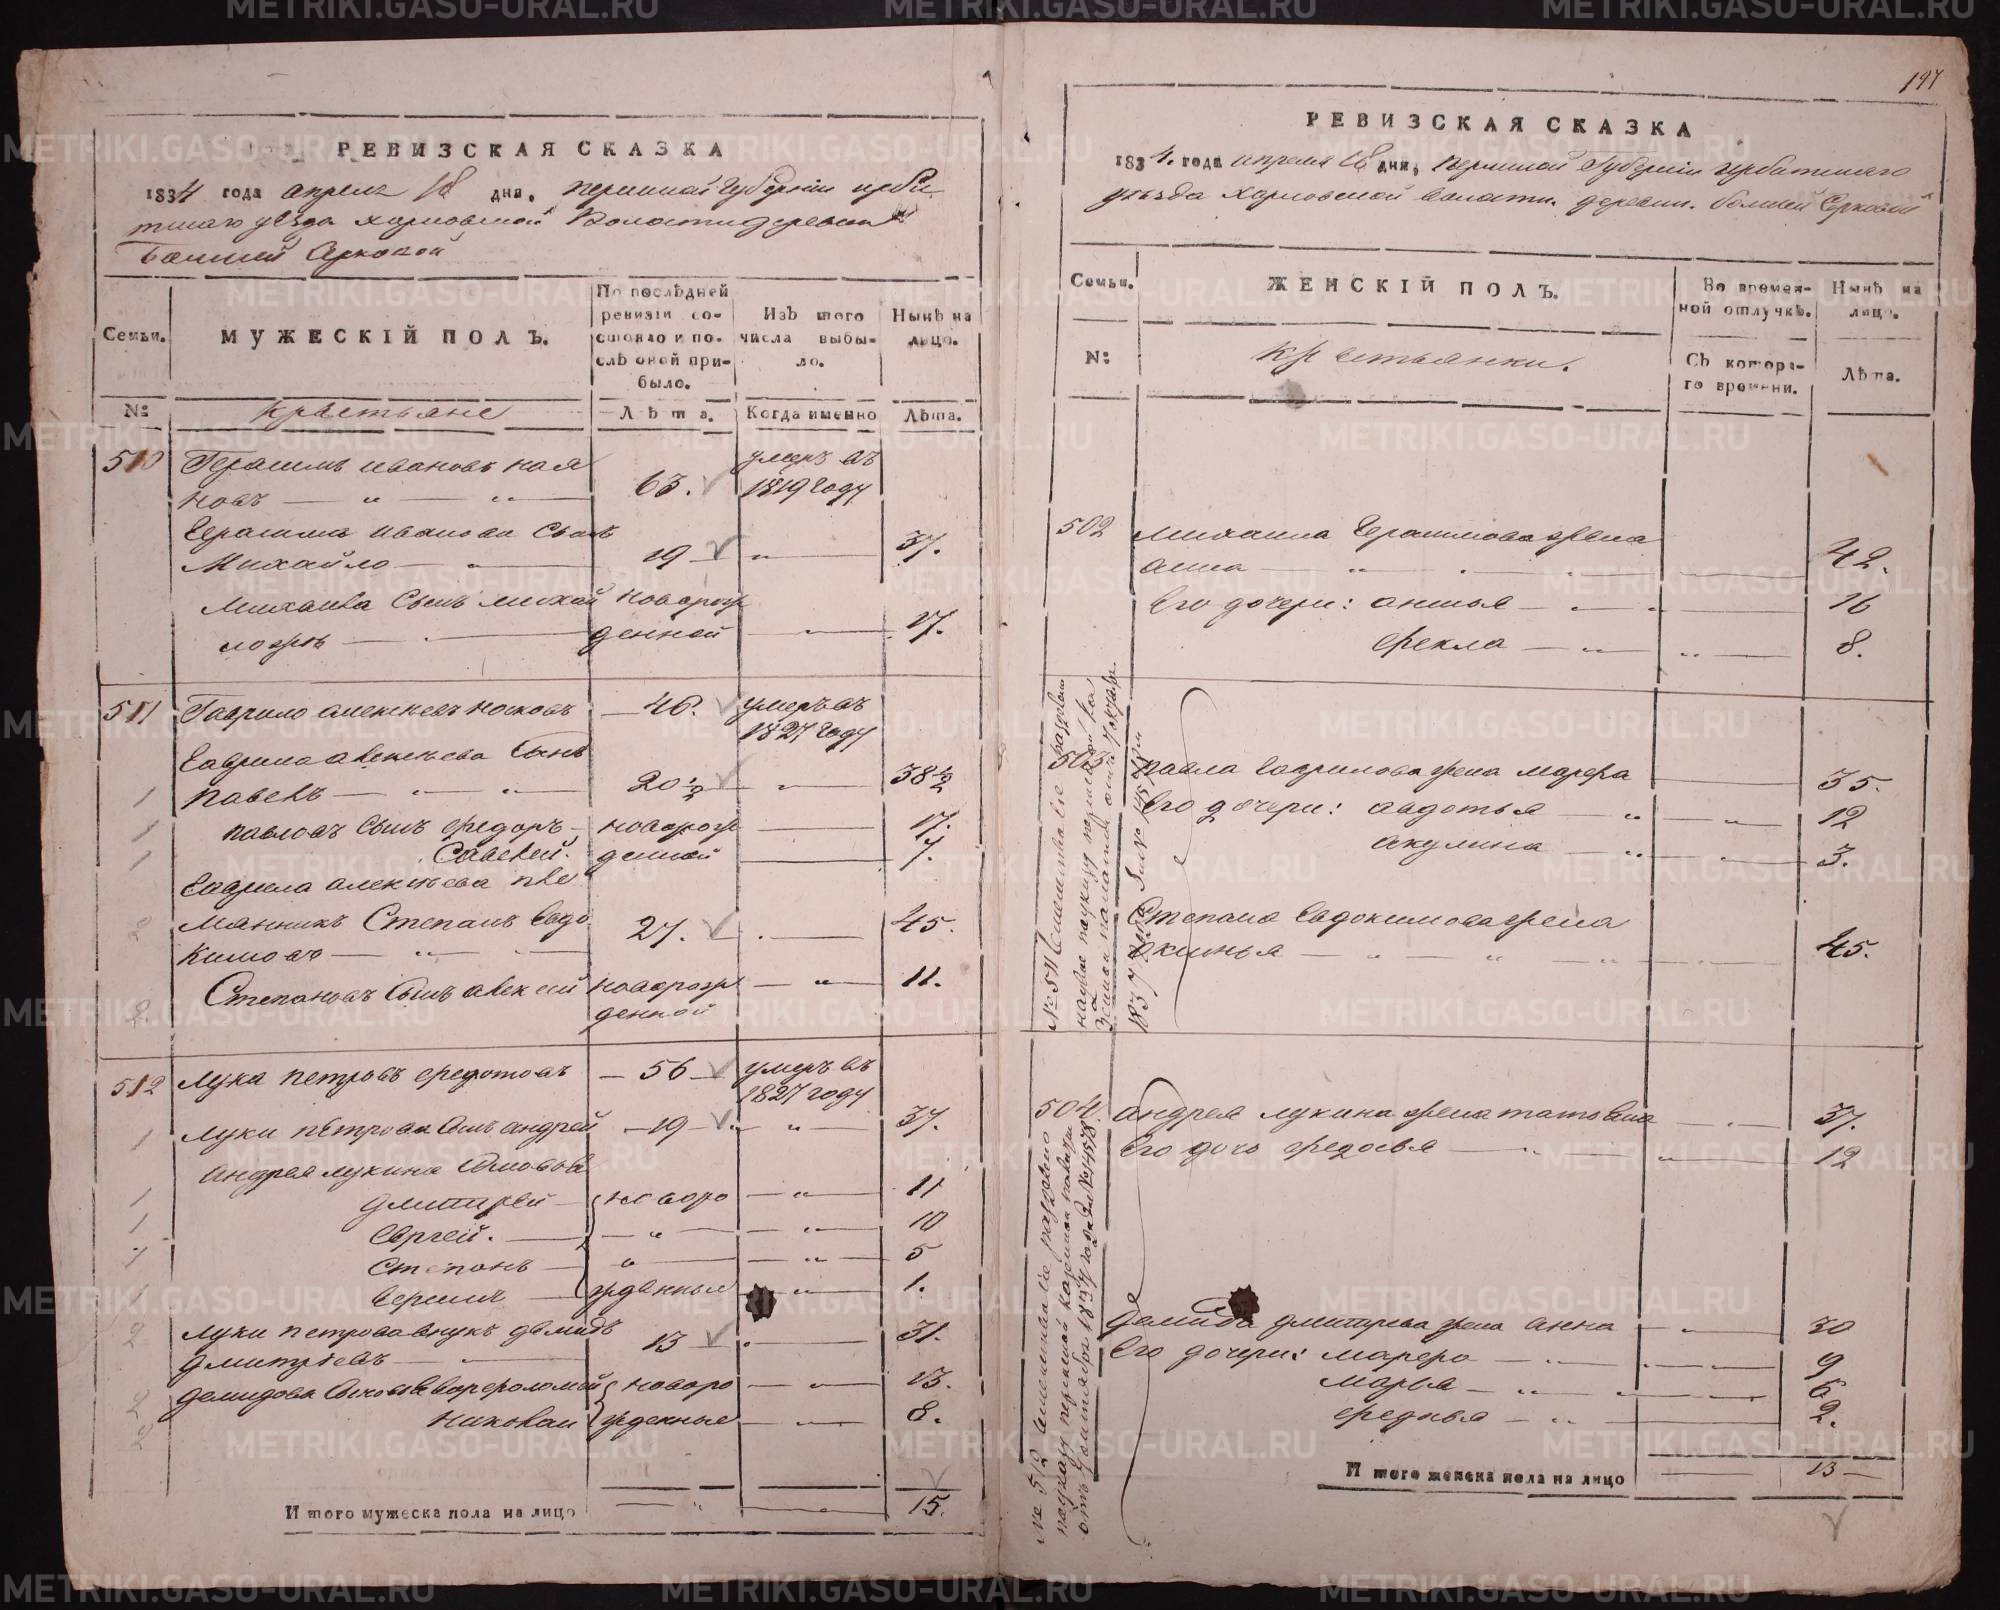 197
РЕВИЗСКАЯ СКАЗКА
1834 года апреля 18 дня. Пермской Губернии ирби
тскаго уѣзда харловской Волости деревни
Большей Серковой
Семьи.
МУЖЕСКІЙ ПОЛЪ.
По послѣдней ревизіи состояло и послѣ оной прибыло.
Изъ того числа выбыло.
Нынѣ на лицо.
№
крестьяне
Лѣта.
Когда именно
Лѣта.
510 Герасимъ ивановъ
новъ 63. умеръ въ 1819 году
Герасима иванова Сынъ
Михайло 19 37.
Михаила Сынъ новорож
денной 17.
511 Гаврило алексѣевъ носковъ 46. умеръ въ 1827 году
Гаврила алексѣева Сынъ
павелъ 20 ½ 38 ½
павловъ Сынъ федоръ новорож 17.
Савелей. денной 7.
Гаврила алексѣева пле
мянникъ Степанъ Евдо
кимовъ 27. 45.
Степановъ Сынъ алексей новорож
денной 11.
512 Лука петровъ федотовъ 56 умеръ въ 1827 году
Луки петрова Сынъ андрей 19 37.
андрея лукина Сыновья
дмитрей новоро 11
Сергей. 10
Степанъ 5
жденные 1.
Луки петрова внукъ демидъ
дмитріевъ 13 31.
демидова Сыновья варфоломей новоро 13.
николай жденные 8.
Итого мужеска пола на лицо 15.
РЕВИЗСКАЯ СКАЗКА
1834. года апреля 18 дня, Пермской Губерніи ирбитскаго
уѣзда харловской волости. деревни. большей Серковой
Семьи.
ЖЕНСКІЙ ПОЛЪ.
Во временной отлучкѣ.
Нынѣ на лицо.
№:
крестьянки.
Съ котораго времени.
Лѣта.
502 Михаила Герасимова жена
анна 42.
Его дочери: анисья 16
фекла 8.
павла Гаврилова жена марфа 35.
Его дочери: авдотья 12
акулина 3.
Степана Евдокимова жена
45.
504. андрея лукина жена татьяна 37.
Его дочь федосья 12
демида дмитрева жена анна 30
Его дочери: марфа 9
марья 6
2.
Итого женска пола на лицо 13
METRIKI.GASO-URAL.RU